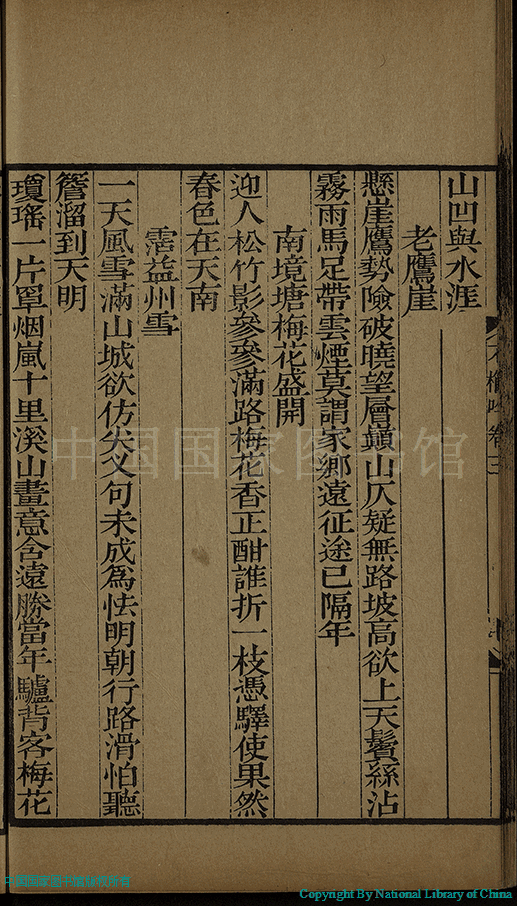 山凹與水涯
老鷹崖
懸崖鷹勢險破曉望層顛山仄疑無路坡高欲上天鬢絲沾
霧雨馬足帶雲煙莫謂家鄉遠征途已隔年
南境塘梅花盛開
迎人松竹影參參滿路梅花香正酣誰折一枝憑驛使果然
春色在天南
霑益州雪
一天風雪滿山城欲仿尖叉句未成為怯明朝行路滑怕聽
簷溜到天明
瓊瑤一片罩烟嵐十里溪山畫意含遠勝當年驢背客梅花
卷三
中国国家图书馆
Copyright By National Library of China